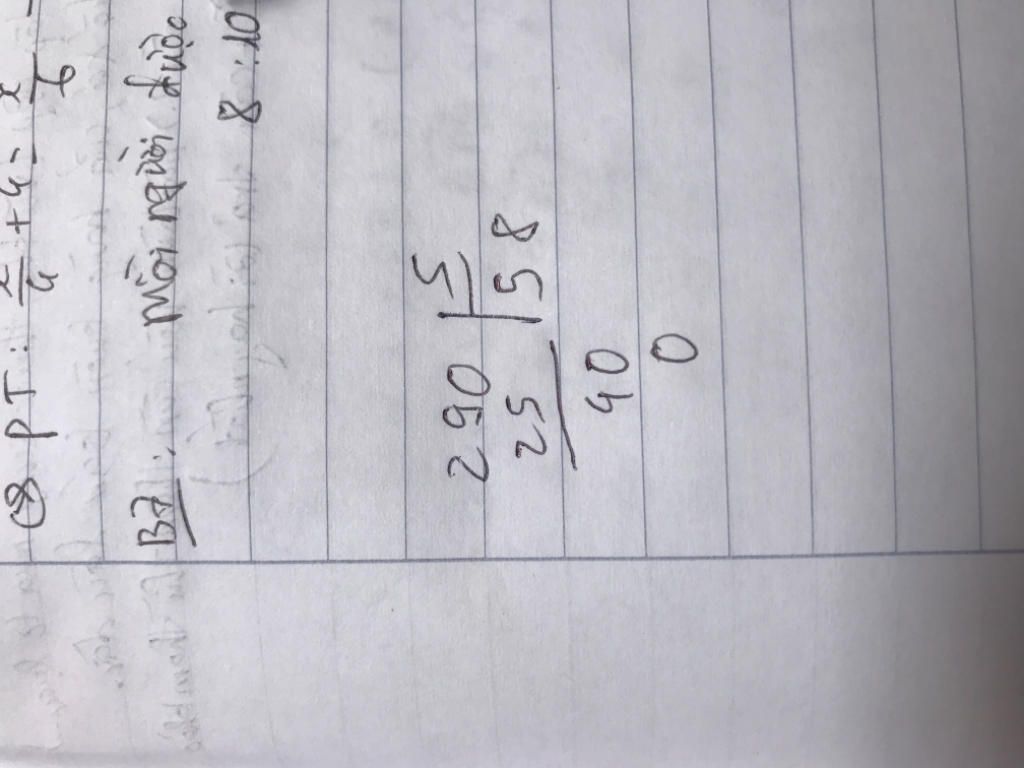 ⑧ PT: x/4 + 4 = x/6
B7: Mỗi người được
8:10
290 | 5
25 | 58
40
0